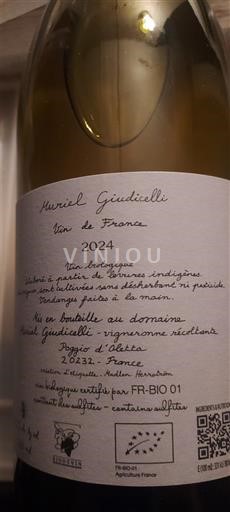 Muriel Giudicelli
Vin de France
2024
VINIOU
Vin biologique
élaboré à partir de levures indigènes.
sont cultivées sans désherbant ni pesticide.
Vendanges faites à la main.
Mis en bouteille au domaine
Muriel Giudicelli - vigneronne récoltante
Poggio d'Oletta
20232 - France
création d'étiquette : Madlen Herrström
vin biologique certifié par FR-BIO 01
contient des sulfites - contains sulfites
FR-BIO-01
Agriculture France
INGRÉDIENTS & NUTRITION